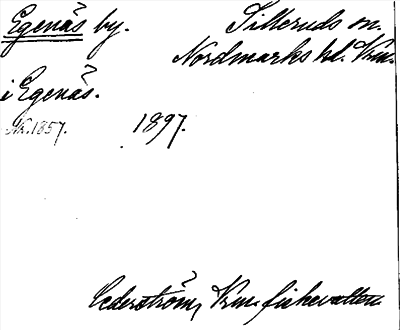 Egenäs by. Silleruds sn.
Nordmarks hd. Vrm.
i Egenäs.
Ak. 1857. 1897.
Cederström, Vrm. fiskevatten